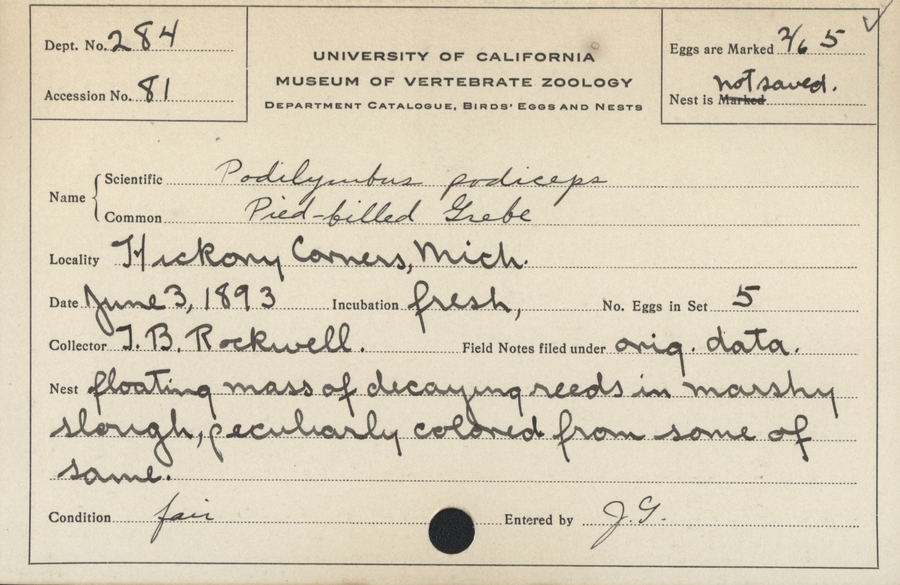 Dept. No. 284
Accession No. 81
UNIVERSITY OF CALIFORNIA
MUSEUM OF VERTEBRATE ZOOLOGY
DEPARTMENT CATALOGUE, BIRDS' EGGS AND NESTS
Eggs are Marked 2/6 5
not saved.
Nest is Marked
Name
Scientific Podilymbus podiceps
Common Pied-billed Grebe
Locality Hickory Corners, Mich.
Date June 3, 1893 Incubation fresh, No. Eggs in Set 5
Collector T. B. Rockwell. Field Notes filed under orig. data.
Nest floating mass of decaying reeds in marshy
slough, peculiarly colored from some of
same.
Condition fair Entered by J. G.